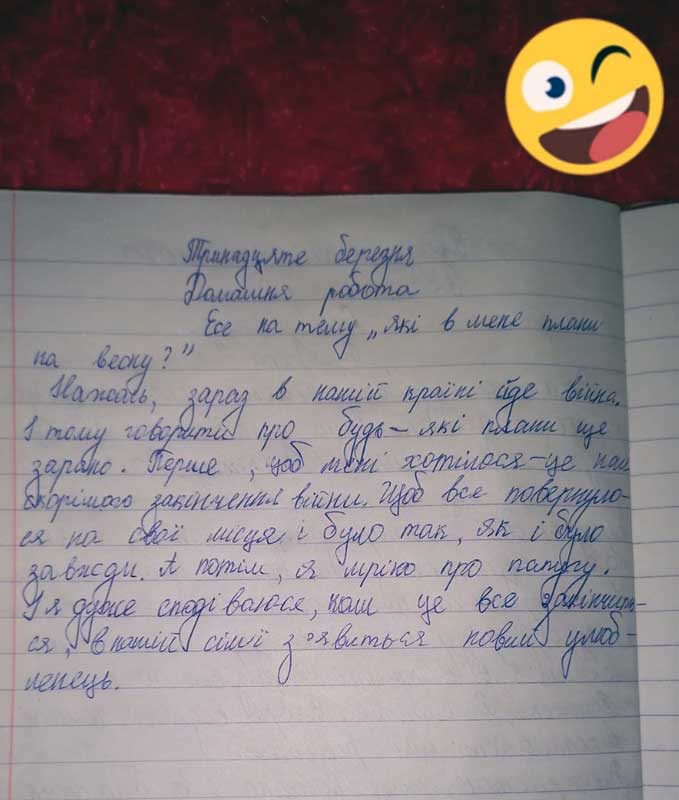 Тринадцяте березня
Домашня робота
Есе на тему „які в мене плани
на весну?”
Нажаль, зараз в нашій країні йде війна.
І тому говорити про будь-які плани ще
зарано. Перше, щоб мені хотілося-це най
скорішого закінчення війни. Щоб все повернуло-
ся на свої місця і було так, як і було
завжди. А потім, я мрію про папугу.
І я дуже сподіваюся, коли це все закінчить-
ся, в нашій сімї з'явиться новий улюб-
ленець.